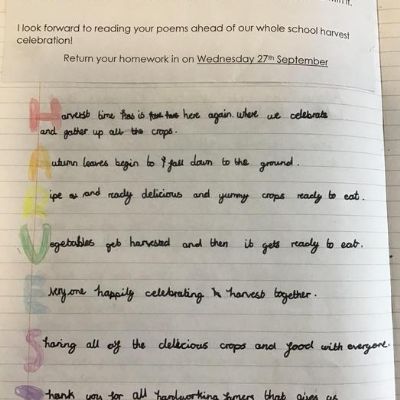 it.
I look forward to reading your poems ahead of our whole school harvest
celebration!
Return your homework in on Wednesday 27th September
Harvest time has is here again where we celebrate
and gather up all the crops.
Autumn leaves begin to fall down to the ground.
Ripe and ready delicious and yummy crops ready to eat.
Vegetables get harvested and then it gets ready to eat.
Everyone happily celebrating harvest together.
Sharing all of the delicious crops and food with everyone.
Thank you for all hardworking that gives us